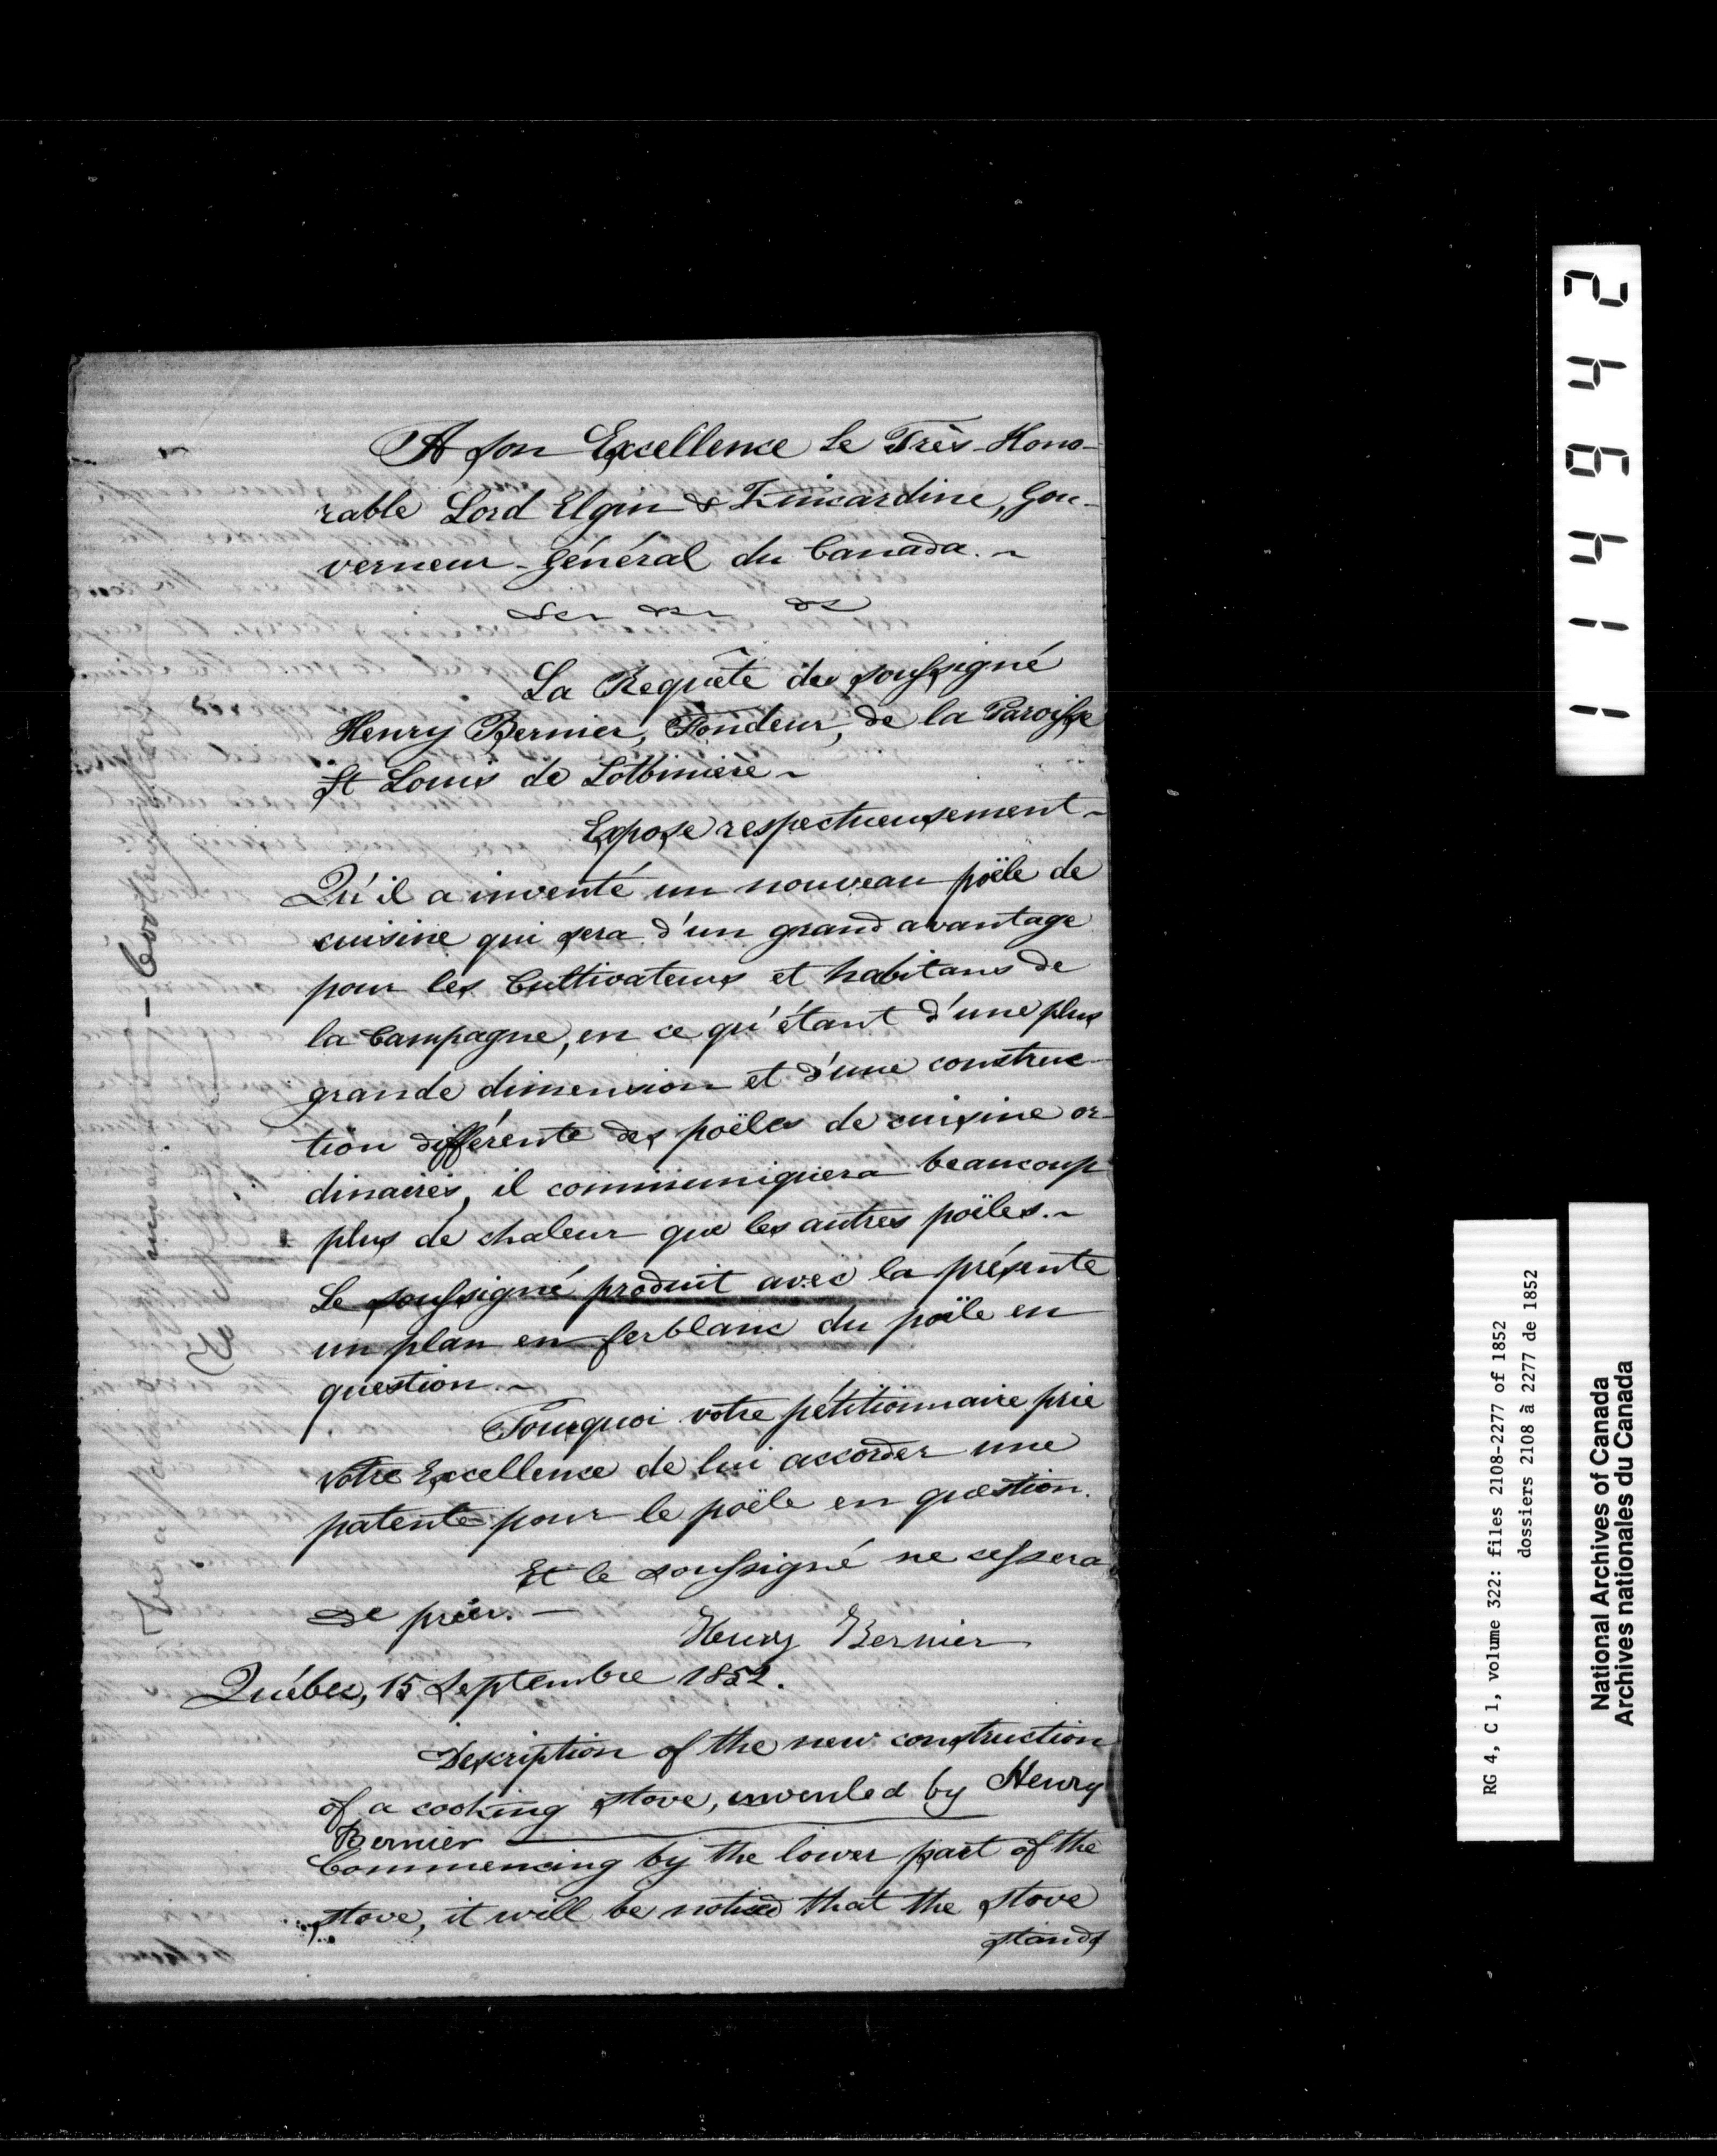 A son Excellence Le Très-Hono-
rable Lord Elgin & Kincardine, Gou-
verneur-Général du Canada. ~
&c &c &c
La Requête du soussigné
Henry Bernier, Fondeur, de la Paroisse
St Louis de Lotbinière ~
Expose respectueusement ~
Qu'il a inventé un nouveau poële de
cuisine qui sera d'un grand avantage
pour les Cultivateurs et habitans de
la Campagne, en ce qu'étant d'une plus
grande dimension et d'une construc-
tion différente des poëles de cuisine or-
dinaires, il communiquera beaucoup
plus de chaleur que les autres poëles. ~
Le soussigné produit avec la présente
un plan en ferblanc du poële en
question. ~
Pourquoi votre pétitionnaire prie
votre Excellence de lui accorder une
patente pour le poële en question.
Et le soussigné ne cessera
de prier. —
Henry Bernier
Québec, 15 Septembre 1852.
Description of the new construction
of a cooking stove, invented by Henry
Bernier
Commencing by the lower part of the
stove, it will be noticed that the stove
stands
114942
RG 4, C 1, volume 322: files 2108-2277 of 1852
dossiers 2108 à 2277 de 1852
National Archives of Canada
Archives nationales du Canada